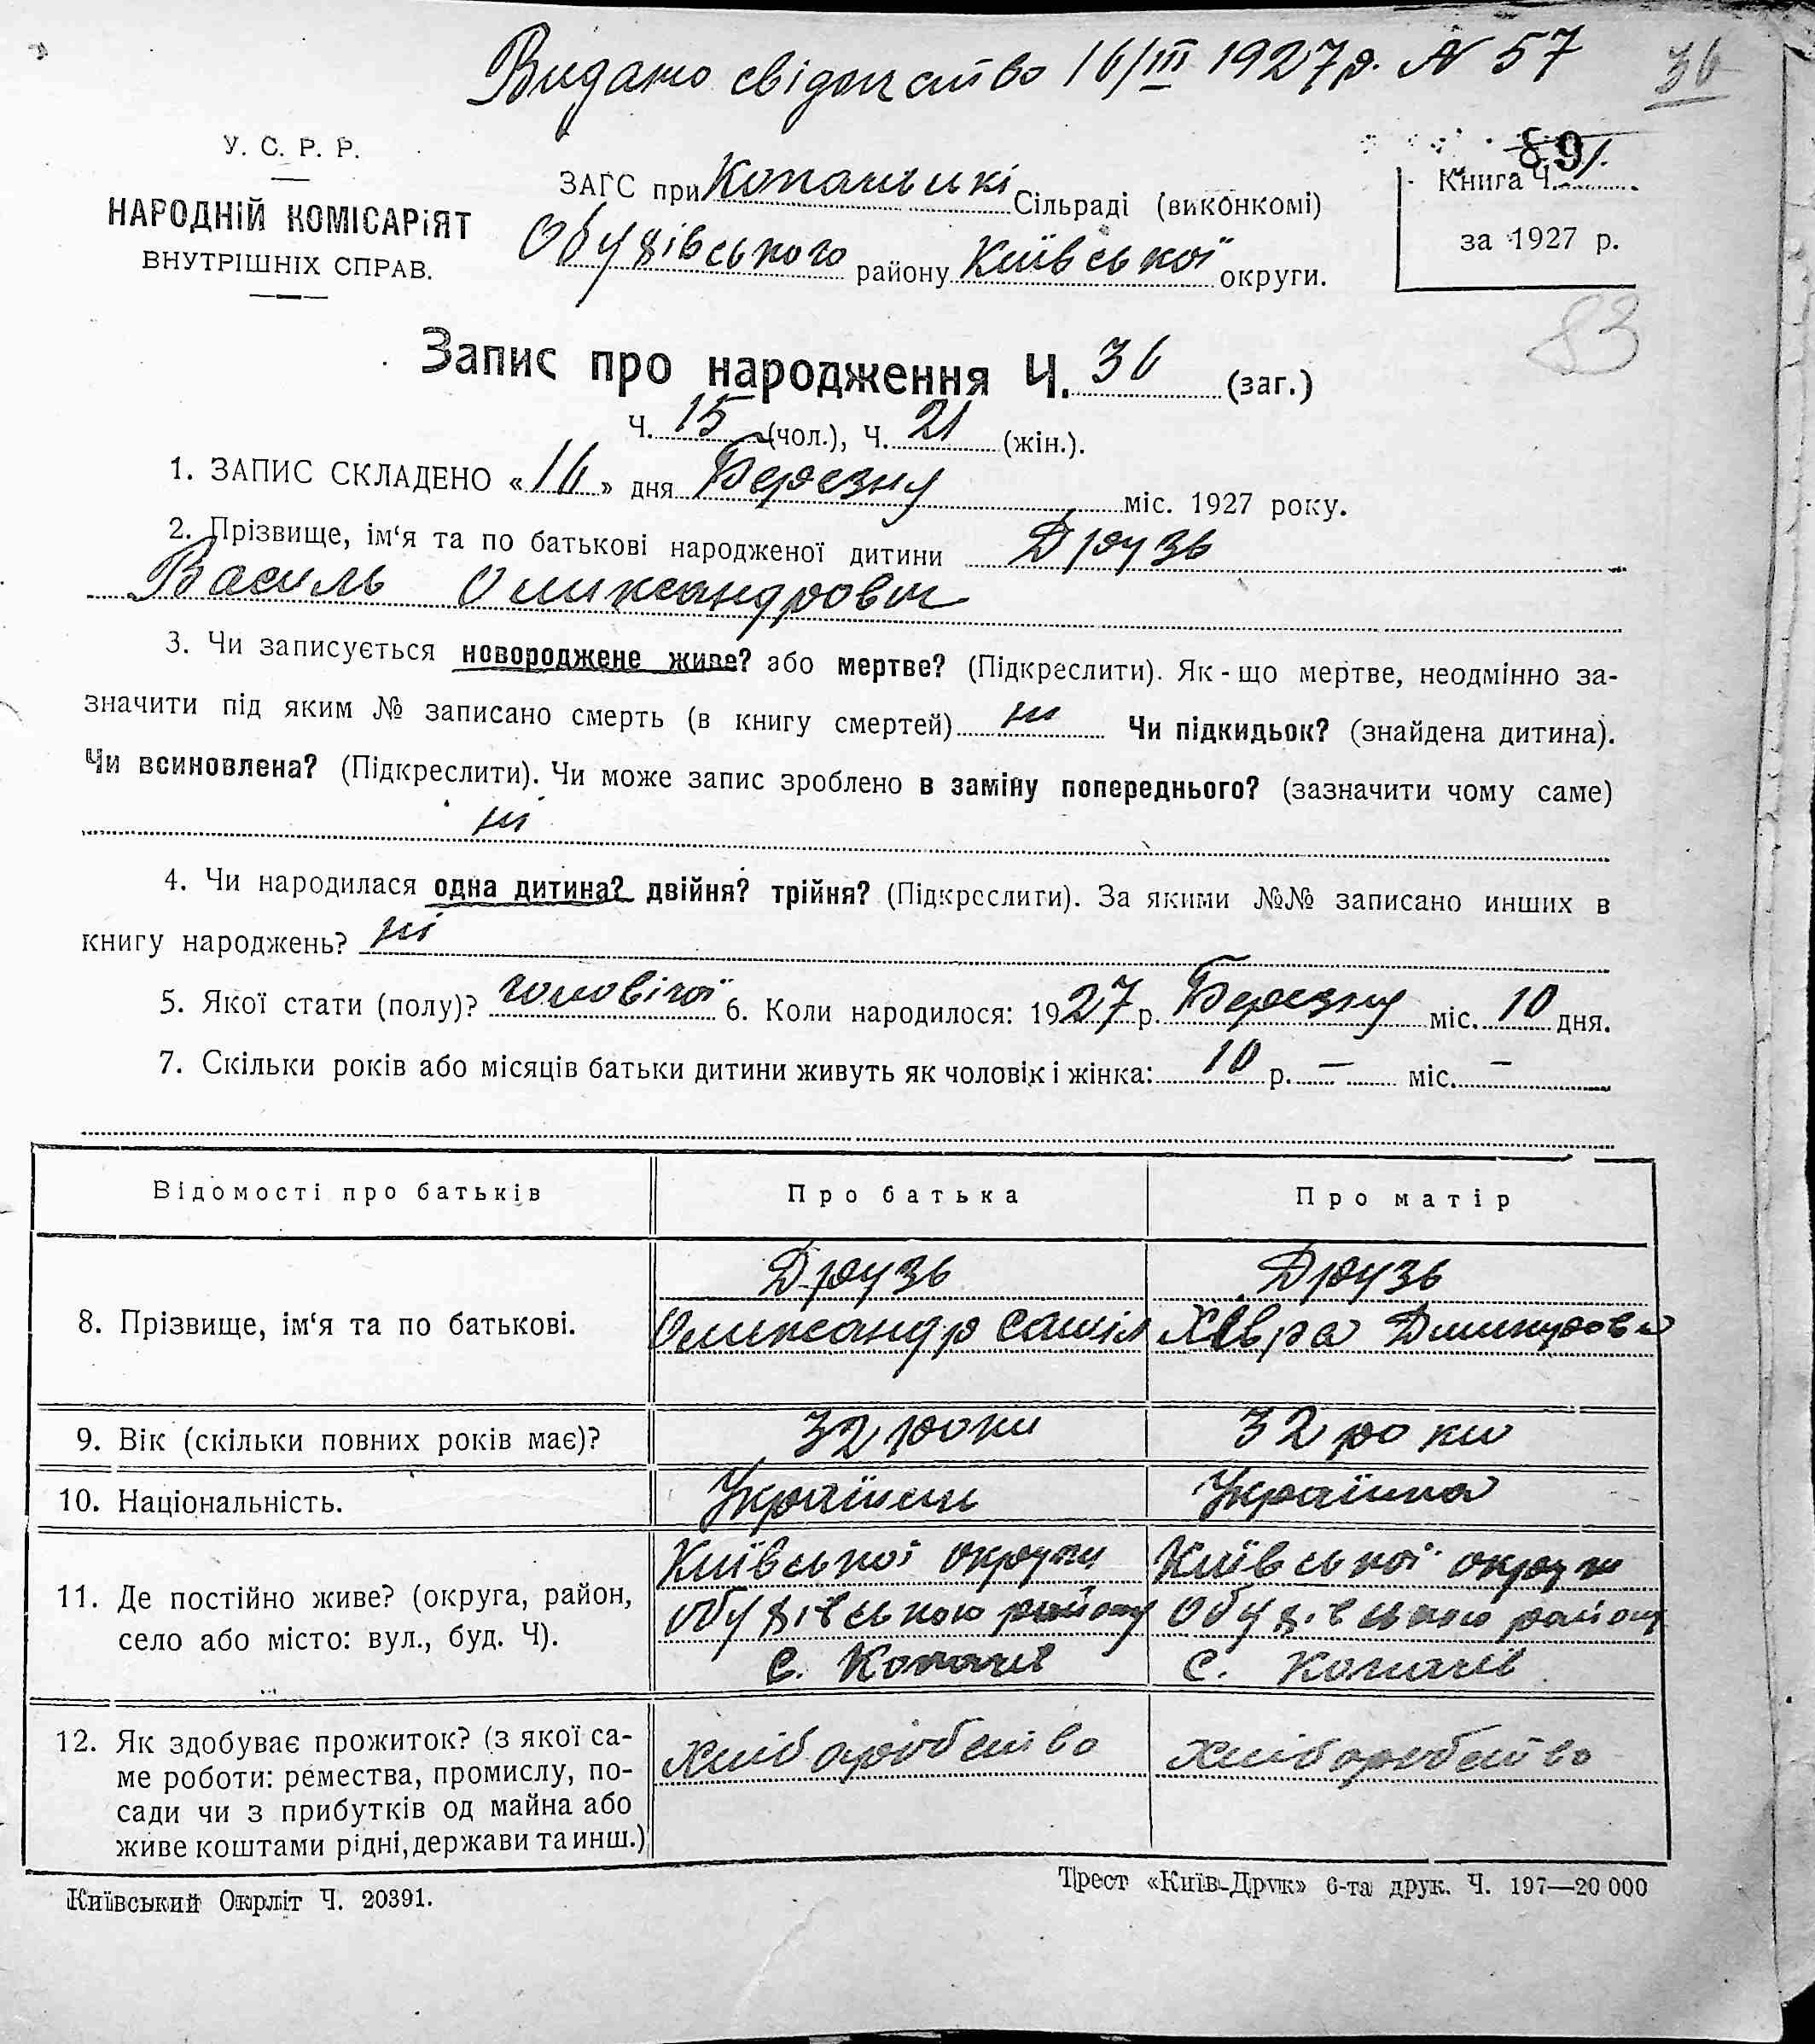 Видано свідоцтво 16/III 1927 р. N 57
36
У. С. Р. Р.
НАРОДНІЙ КОМІСАРІЯТ
ВНУТРІШНІХ СПРАВ.
ЗАГС при Сільраді (виконкомі)
Обухівського району Київської округи.
Книга Ч. 91.
за 1927 р.
83
Запис про народження Ч. 36 (заг.)
Ч. 15 (чол.), Ч. 21 (жін.).
1. ЗАПИС СКЛАДЕНО «16» дня Березня міс. 1927 року.
2. Прізвище, ім‘я та по батькові народженої дитини Друзь
Василь Олександрович
3. Чи записується новороджене живе? або мертве? (Підкреслити). Як-що мертве, неодмінно за-
значити під яким № записано смерть (в книгу смертей) ні Чи підкидьок? (знайдена дитина).
Чи всиновлена? (Підкреслити). Чи може запис зроблено в заміну попереднього? (зазначити чому саме)
ні
4. Чи народилася одна дитина? двійня? трійня? (Підкреслити). За якими №№ записано инших в
книгу народжень? ні
5. Якої стати (полу)? чоловічої 6. Коли народилося: 1927 р. Березня міс. 10 дня.
7. Скільки років або місяців батьки дитини живуть як чоловік і жінка: 10 р. – міс. –
Відомості про батьків Про батька Про матір
8. Прізвище, ім‘я та по батькові.
Друзь
Олександр
Друзь
Хівра
9. Вік (скільки повних років має)? 32 роки 32 роки
10. Національність. Українець Українка
11. Де постійно живе? (округа, район,
село або місто: вул., буд. Ч).
Київської округи
Обухівського району
с. Копачів
Київської округи
Обухівського району
с. Копачів
12. Як здобуває прожиток? (з якої са-
ме роботи: ремества, промислу, по-
сади чи з прибутків од майна або
живе коштами рідні, держави та инш.)
хліборобство
хліборобство
Київський Окрліт Ч. 20391.
Трест «Київ-Друк» 6-та друк. Ч. 197—20 000